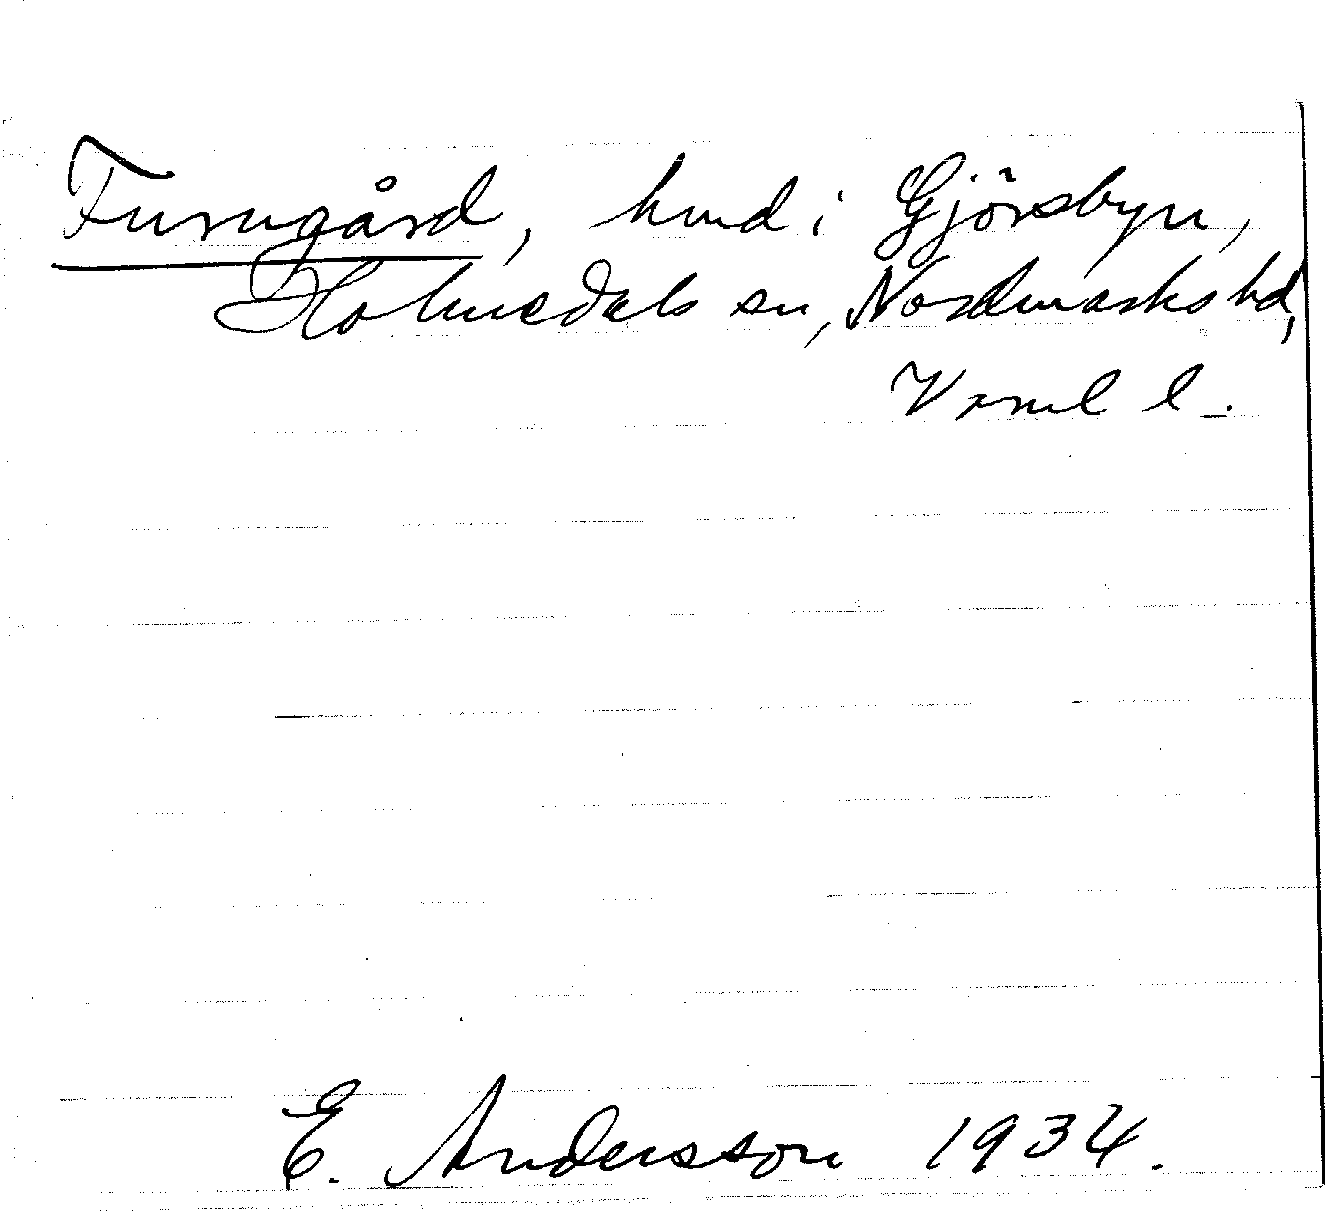 Furugård, hmd i Gjörsbyn,
Holmedals sn, Nordmarks hd,
Vrml l.
E. Andersson 1934.